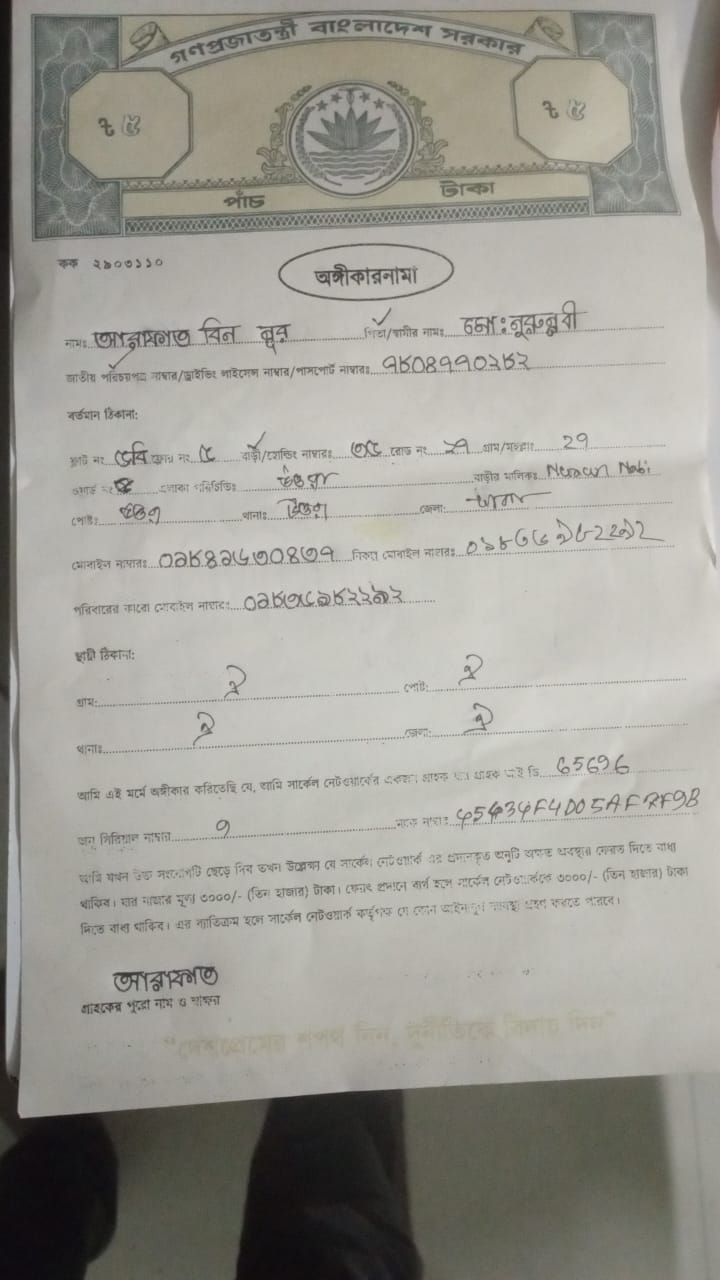 গণপ্রজাতন্ত্রী বাংলাদেশ সরকার
ট ৫ ট ৫
পাঁচ টাকা
কক ২৯০৩১১০
অঙ্গীকারনামা
নামঃ আরাফাত বিন নুর পিতা/স্বামীর নামঃ মোঃ নুরুন্নবী
জাতীয় পরিচয়পত্র নাম্বার/ড্রাইভিং লাইসেন্স নাম্বার/পাসপোর্ট নাম্বারঃ
বর্তমান ঠিকানা:
ফ্লাট নং ৫বি ফ্লোর নং ৫ বাড়ী/হোল্ডিং নাম্বারঃ ৩৫ রোড নং ২৭ গ্রাম/মহল্লাঃ 29
এলাকা পরিচিতিঃ উত্তরা বাড়ীর মালিকঃ Nabi
পোষ্টঃ উত্তরা থানাঃ উত্তরা জেলাঃ ঢাকা
মোবাইল নাম্বারঃ বিকল্প মোবাইল নাম্বারঃ
পরিবারের কারো মোবাইল নাম্বারঃ
স্থায়ী ঠিকানা:
গ্রাম: ঐ পোষ্ট: ঐ
থানাঃ ঐ জেলা: ঐ
আমি এই মর্মে অঙ্গীকার করিতেছি যে, আমি সার্কেল নেটওয়ার্কের একজন গ্রাহক যার গ্রাহক আই ডি 65696
অনু সিরিয়াল নাম্বার 9 ম্যাক নাম্বারঃ
আমি যখন উক্ত সংযোগটি ছেড়ে দিব তখন উল্লেখ্য যে সার্কেল নেটওয়ার্ক এর প্রদানকৃত অনুটি অক্ষত অবস্থায় ফেরত দিতে বাধ্য
থাকিব। যার বাজার মূল্য ৩০০০/- (তিন হাজার) টাকা। ফেরৎ প্রদানে ব্যর্থ হলে সার্কেল নেটওয়ার্ককে ৩০০০/- (তিন হাজার) টাকা
দিতে বাধ্য থাকিব। এর ব্যতিক্রম হলে সার্কেল নেটওয়ার্ক কর্তৃপক্ষ যে কোন আইনানুগ ব্যবস্থা গ্রহন করতে পারবে।
আরাফাত
গ্রাহকের পুরো নাম ও স্বাক্ষর
"দেশপ্রেমের শপথ নিন, দুর্নীতিকে বিদায় দিন"